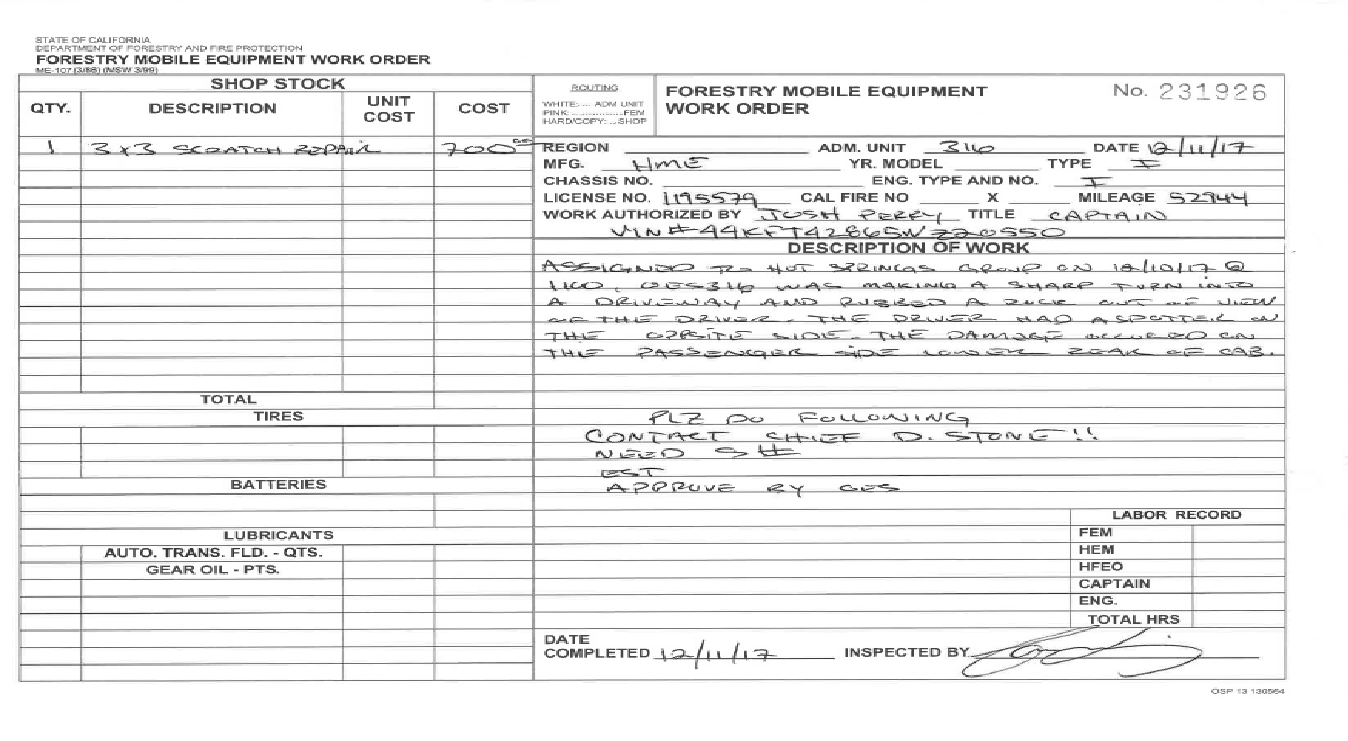 STATE OF CALIFORNIA
DEPARTMENT OF FORESTRY AND FIRE PROTECTION
FORESTRY MOBILE EQUIPMENT WORK ORDER
ME-107 (3/86) (MSW 3/99)
SHOP STOCK
QTY. DESCRIPTION UNIT COST COST
1 3x3 SCRATCH REPAIR 700
TOTAL
TIRES
BATTERIES
LUBRICANTS
AUTO. TRANS. FLD. - QTS.
GEAR OIL - PTS.
ROUTING
WHITE: ... ADM UNIT
PINK: ..............FEM
HARD/COPY: .. SHOP
FORESTRY MOBILE EQUIPMENT
WORK ORDER
No. 231926
REGION ADM. UNIT 316 DATE 12/11/17
MFG. HME YR. MODEL TYPE I
CHASSIS NO. ENG. TYPE AND NO. I
LICENSE NO. 1195579 CAL FIRE NO X MILEAGE 52944
WORK AUTHORIZED BY JOSH PERRY TITLE CAPTAIN
VIN# 44KFT42865WZ20550
DESCRIPTION OF WORK
ASSIGNED TO HOT SPRINGS GROUP ON 12/10/17 @
1100, OES316 WAS MAKING A SHARP TURN INTO
A DRIVEWAY AND RUBBED A ROCK OUT OF VIEW
OF THE DRIVER. THE DRIVER HAD A SPOTTER ON
THE OPPSITE SIDE. THE DAMAGE OCCURED ON
THE PASSENGER SIDE LOWER REAR OF CAB.
PLZ DO FOLLOWING
CONTACT CHIEF D. STONE!!
NEED S#
EST
APPROVE BY OES
LABOR RECORD
FEM
HEM
HFEO
CAPTAIN
ENG.
TOTAL HRS
DATE
COMPLETED 12/11/17 INSPECTED BY
OSP 13 130564